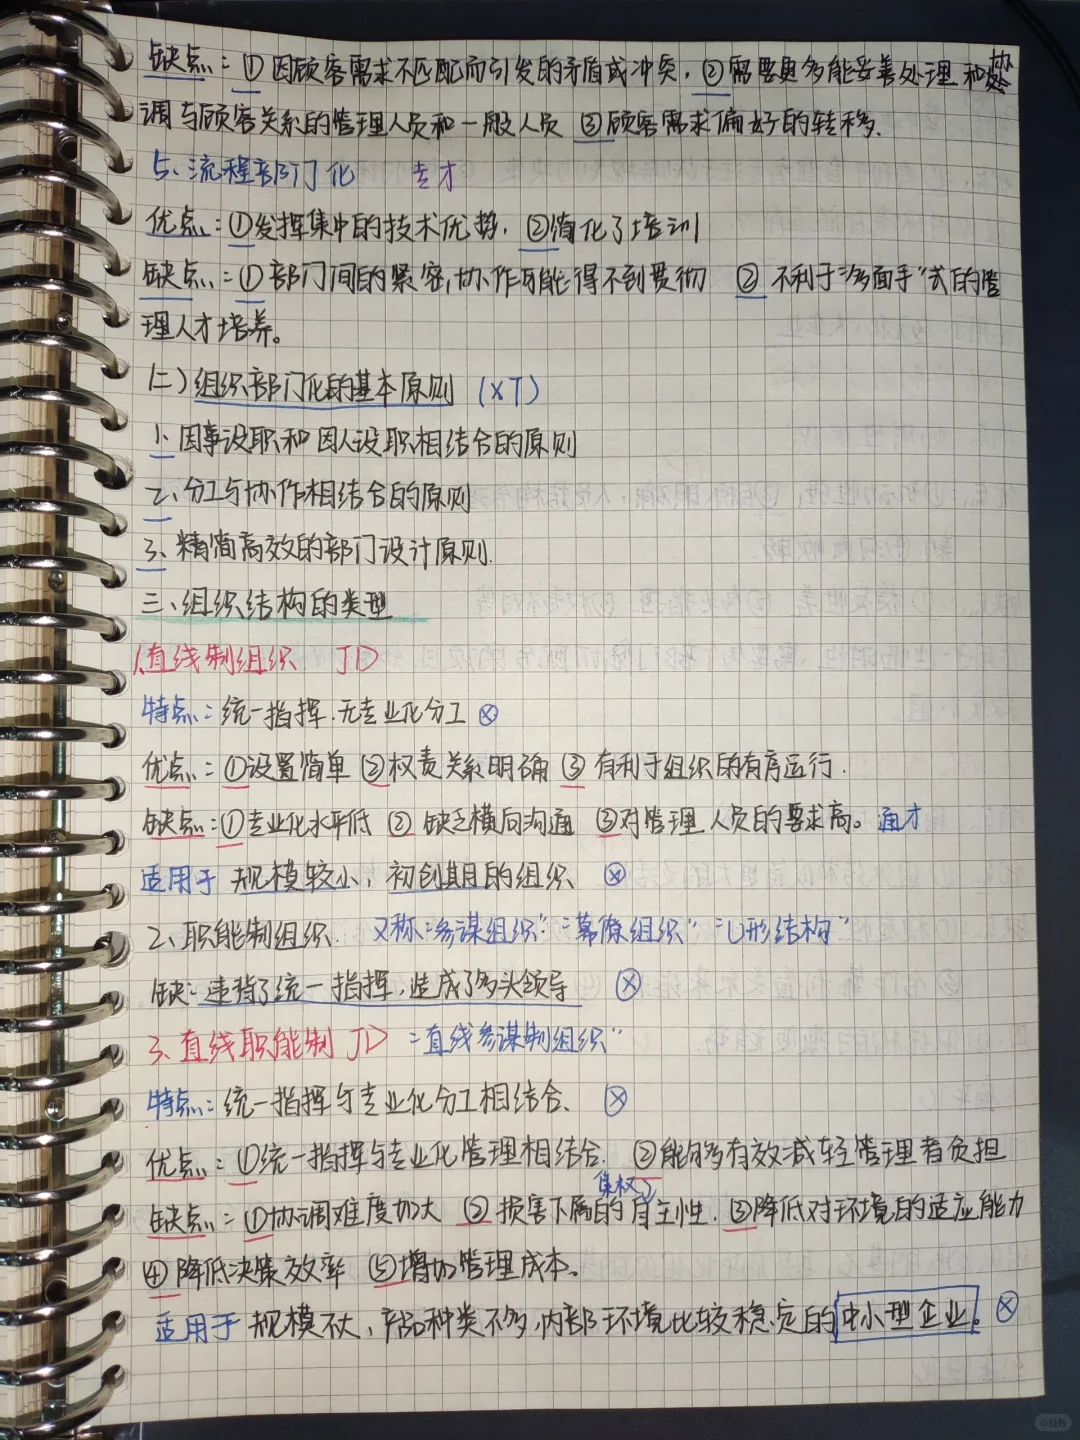 缺点：①因顾客需求不匹配而引发的矛盾或冲突，②需要更多能妥善处理和协
调与顾客关系的管理人员和一般人员 ③顾客需求偏好的转移.
5、流程部门化 专才
优点：①发挥集中的技术优势，②简化了培训
缺点：①部门间的紧密协作可能得不到贯彻 ②不利于“多面手”式的管
理人才培养。
(二)组织部门化的基本原则 (XT)
1、因事设职和因人设职相结合的原则
2、分工与协作相结合的原则
3、精简高效的部门设计原则.
三、组织结构的类型
1.直线制组织 JD
特点：统一指挥.无专业化分工 ⊗
优点：①设置简单 ②权责关系明确 ③有利于组织的有序运行.
缺点：①专业化水平低 ②缺乏横向沟通 ③对管理人员的要求高。通才
适用于 规模较小，初创期的组织 ⊗
2、职能制组织. 又称“参谋组织”“幕僚组织”“U形结构”
缺：违背了统一指挥，造成了多头领导 ⊗
3、直线职能制 JD “直线参谋制组织”
特点：统一指挥与专业化分工相结合、 ⊗
优点：①统一指挥与专业化管理相结合. ②能够多有效减轻管理者负担
集权
缺点：①协调难度加大 ②损害下属的自主性.③降低对环境的适应能力
④降低决策效率 ⑤增加管理成本。
适用于 规模不大，产品种类不多，内部环境比较稳定的中小型企业。⊗
小红书